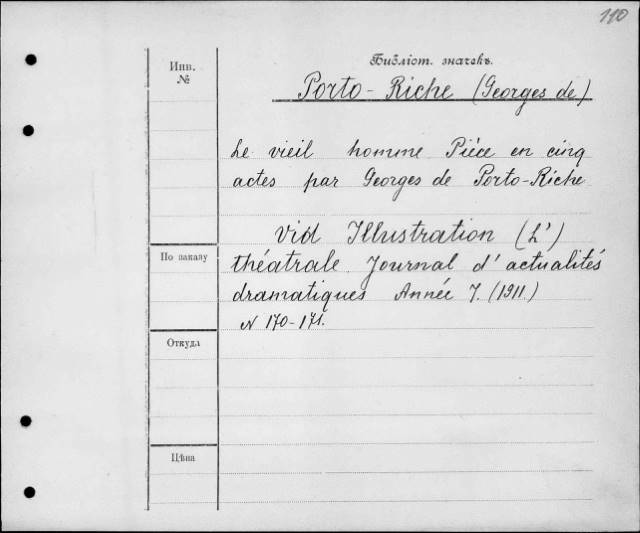 110
Библіот. значекъ.
Инв.
№
Porto-Riche (Georges de)
Le vieil homme Pièce en cinq
actes par Georges de Porto-Riche
vid Illustration (L')
По заказу
théatrale. Journal d'actualités
dramatiques Année 7. (1911.)
N 170-171.
Откуда
Цѣна